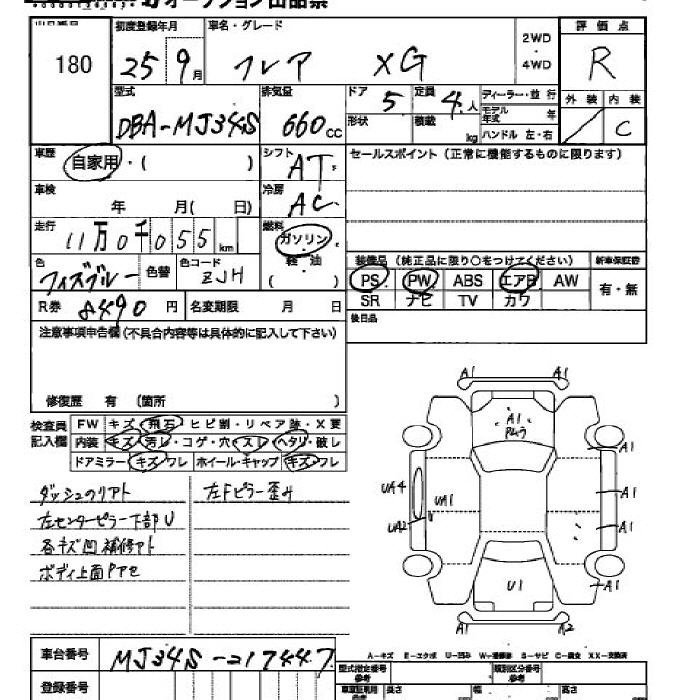 オークション出品票
出品番号 初度登録年月 車名・グレード 2WD・4WD 評価点
180 25 9月 フレア XG R
型式 排気量 ドア 5 定員 4人 ディーラー・並行 外装 内装
DBA-MJ34S 660cc 形状 積載 kg モデル年式 年 ハンドル 左・右 C
車歴 自家用・( ) シフト AT セールスポイント(正常に機能するものに限ります)
車検 年 月( 日) 冷房 AC
走行 11万0千055km 燃料 ガソリン 軽油 ( )
装備品(純正品に限り○をつけてください) 新車保証書
色 フィズブルー 色替 色コード ZJH
PS PW ABS エアB AW 有・無
SR ナビ TV カワ
R券 8490円 名変期限 月 日 後日品
注意事項申告欄(不具合内容等は具体的に記入して下さい)
修復歴 有 (箇所 )
検査員記入欄 FW キズ・飛石・ヒビ割・リペア跡・X要
内装 キズ・汚レ・コゲ・穴・スレ・ヘタリ・破レ
ドアミラー キズ・ワレ ホイール・キャップ キズ・ワレ
ダッシュのリアト 左Fピラー歪み
左センターピラー下部U
各キズ凹補修アト
ボディ上面PアE
A1 A1
A1
Pムラ
A1
UA4 UA1 A1
UA2 U A1
U1 A1
A1 A2
A-キズ E-エクボ U-凹み W-補修跡 S-サビ C-腐食 XX-交換済
車台番号 MJ34S-217447
登録番号
型式指定番号 参考 類別区分番号 参考
長さ 幅 高さ